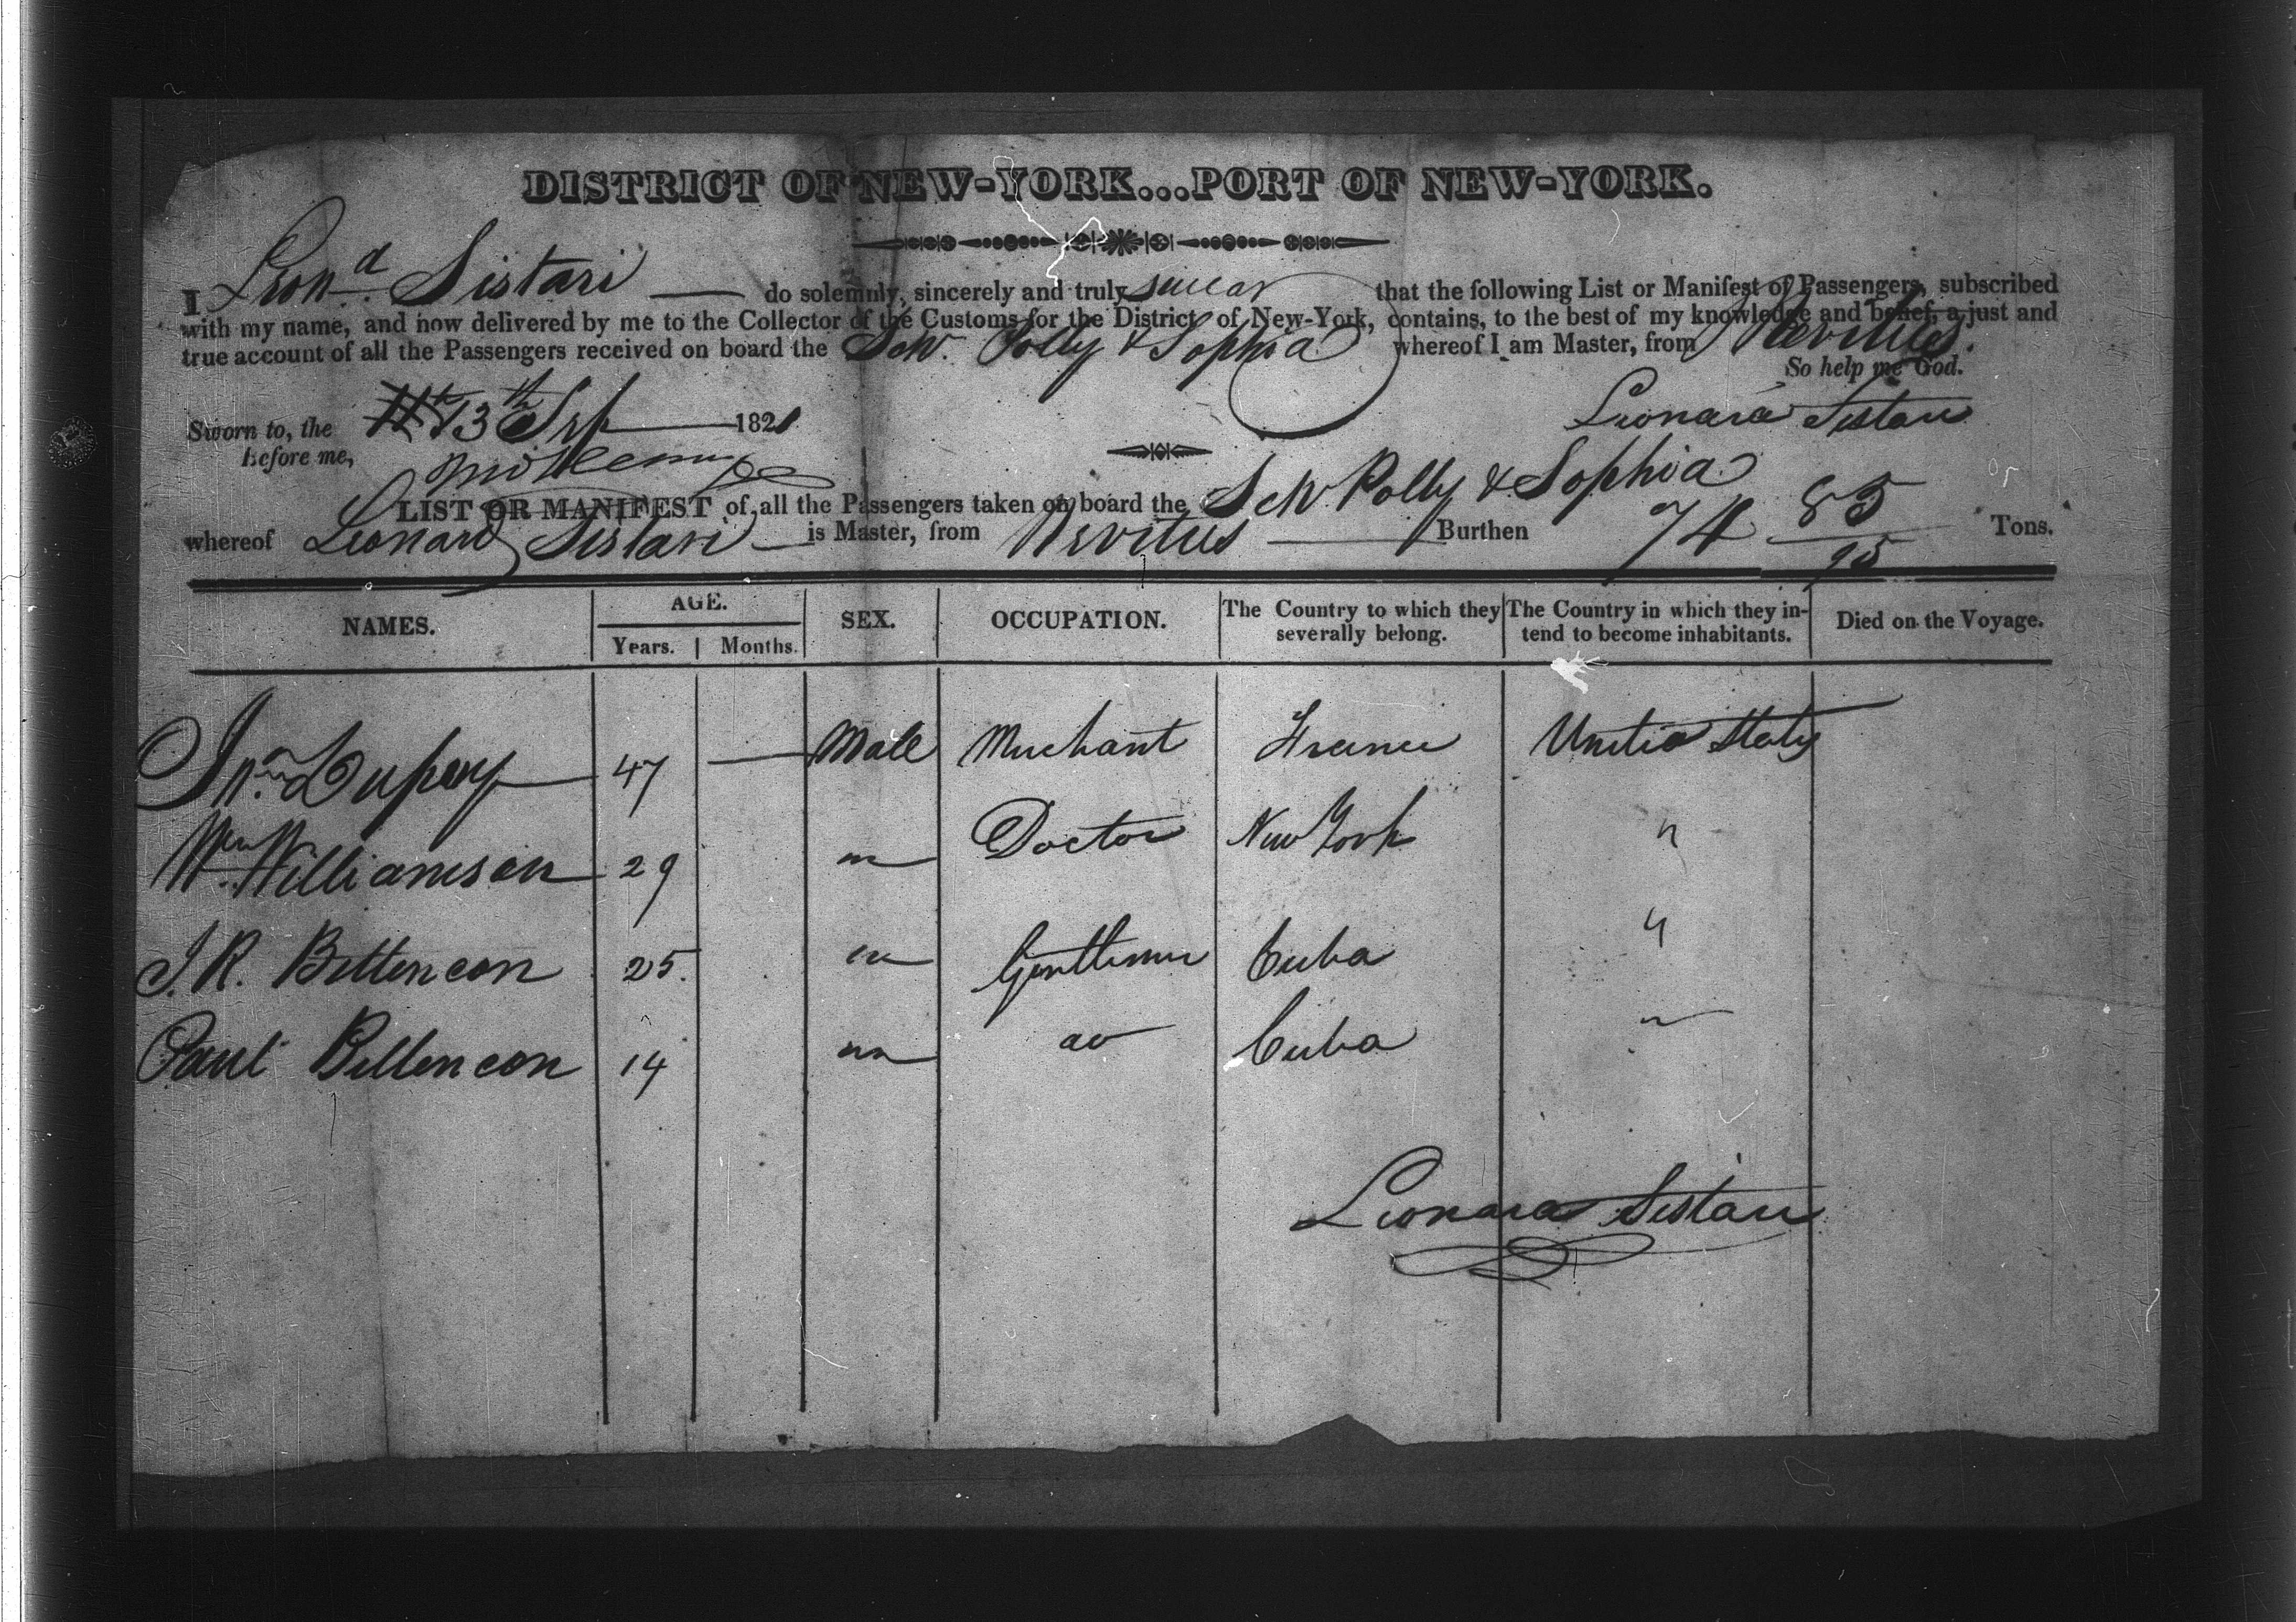 DISTRICT OF NEW-YORK...PORT OF NEW-YORK.
I Leond. Sistari do solemnly, sincerely and truly swear that the following List or Manifest of Passengers, subscribed
with my name, and now delivered by me to the Collector of the Customs for the District of New-York, contains, to the best of my knowledge and belief, a just and
true account of all the Passengers received on board the Schr. Polly & Sophia whereof I am Master, from Nevitus.
So help me God.
Sworn to, the 13th Sep 1821 Leonard Sistari
before me,
LIST OR MANIFEST of all the Passengers taken on board the Schr Polly & Sophia
whereof Leonard Sistari is Master, from Nevitus Burthen 74 85/95 Tons.
NAMES. AGE. Years. Months. SEX. OCCUPATION. The Country to which they severally belong. The Country in which they intend to become inhabitants. Died on the Voyage.
Jno. Dupuy 47 — Male Merchant France United States
Wm. Williamson 29 " Doctor New York "
J.R. Bettencon 25. " Gentleman Cuba "
Paul Bettencon 14 " do Cuba "
Leonard Sistari